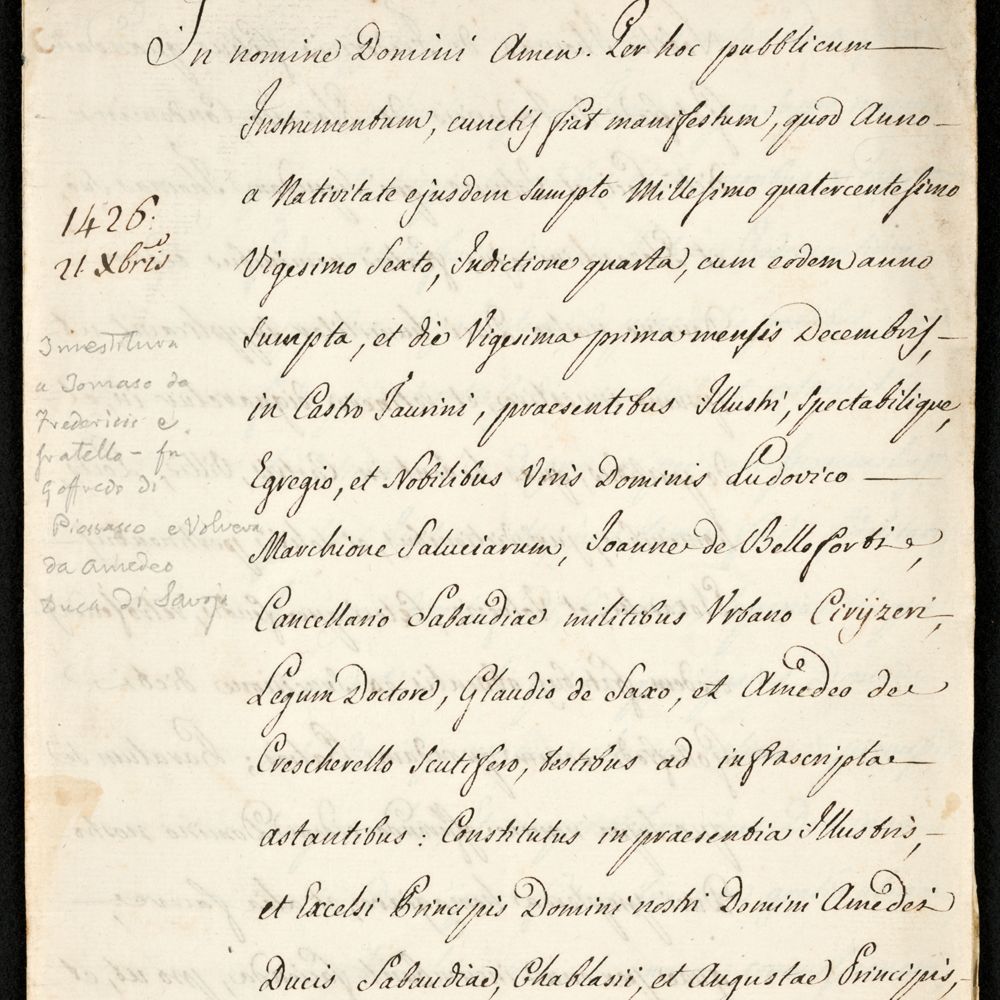 In nomine Domini Amen. Per hoc pubblicum
Instrumentum, cunctis fiat manifestum, quod Anno
a Nativitate ejusdem sumpto Millesimo quatercentesimo
Vigesimo Sexto, Indictione quarta, cum eodem anno
sumpta, et die Vigesima prima mensis Decembris,
in Castro Taurini, praesentibus Illustri, Spectabilique,
Egregio, et Nobilibus Viris Dominis Ludovico
Marchione Saluciarum, Joanne de Belloforti,
Cancellario Sabaudiae militibus Urbano Cirijzeri,
Legum Doctore, Glaudio de Saxo, et Amedeo de
Crescherello Scutifero, testibus ad infrascripta
astantibus: Constitutus in praesentia Illustris,
et Excelsi Principis Domini nostri Domini Amedei
Ducis Sabaudiae, Chablasii, et Augustae Principis,
1426.
21 Xbris
Investitura
a Tomaso da
Fredericis e
fratello - fu
Goffredo di
Piossasco e Volvera
da Amedeo
Duca di Savoja